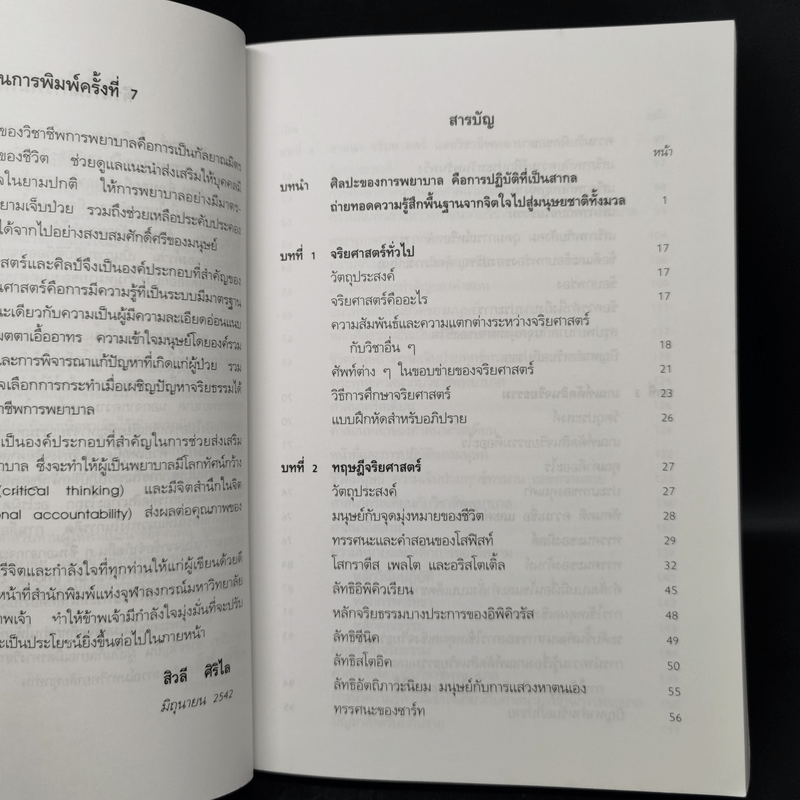 นการพิมพ์ครั้งที่ 7
ของวิชาชีพการพยาบาลคือการเป็นกัลยาณมิตร
ของชีวิต ช่วยดูแลแนะนำส่งเสริมให้บุคคลมี
จในยามปกติ ให้การพยาบาลอย่างมีมาตร-
ยามเจ็บป่วย รวมถึงช่วยเหลือประคับประคอง
ได้จากไปอย่างสงบสมศักดิ์ศรีของมนุษย์
สตร์และศิลป์จึงเป็นองค์ประกอบที่สำคัญของ
นศาสตร์คือการมีความรู้ที่เป็นระบบมีมาตรฐาน
ณะเดียวกับความเป็นผู้มีความละเอียดอ่อนแนบ
มตตาเอื้ออาทร ความเข้าใจมนุษย์โดยองค์รวม
และการพิจารณาแก้ปัญหาที่เกิดแก่ผู้ป่วย รวม
จเลือกการกระทำเมื่อเผชิญปัญหาจริยธรรมได้
าชีพการพยาบาล
เป็นองค์ประกอบที่สำคัญในการช่วยส่งเสริม
าบาล ซึ่งจะทำให้ผู้เป็นพยาบาลมีโลกทัศน์กว้าง
(critical thinking) และมีจิตสำนึกในจิต
onal accountability) ส่งผลต่อคุณภาพของ
รีจิตและกำลังใจที่ทุกท่านให้แก่ผู้เขียนด้วยดี
หน้าที่สำนักพิมพ์แห่งจุฬาลงกรณ์มหาวิทยาลัย
าพเจ้า ทำให้ข้าพเจ้ามีกำลังใจมุ่งมั่นที่จะปรับ
ะเป็นประโยชน์ยิ่งขึ้นต่อไปในภายหน้า
สิวลี ศิริไล
มิถุนายน 2542
สารบัญ
หน้า
บทนำ ศิลปะของการพยาบาล คือการปฏิบัติที่เป็นสากล
ถ่ายทอดความรู้สึกพื้นฐานจากจิตใจไปสู่มนุษยชาติทั้งมวล 1
บทที่ 1 จริยศาสตร์ทั่วไป 17
วัตถุประสงค์ 17
จริยศาสตร์คืออะไร 17
ความสัมพันธ์และความแตกต่างระหว่างจริยศาสตร์
กับวิชาอื่น ๆ 18
ศัพท์ต่าง ๆ ในขอบข่ายของจริยศาสตร์ 21
วิธีการศึกษาจริยศาสตร์ 23
แบบฝึกหัดสำหรับอภิปราย 26
บทที่ 2 ทฤษฎีจริยศาสตร์ 27
วัตถุประสงค์ 27
มนุษย์กับจุดมุ่งหมายของชีวิต 28
ทรรศนะและคำสอนของโสฟิสท์ 29
โสกราตีส เพลโต และอริสโตเติ้ล 32
ลัทธิอิพิคิวเรียน 45
หลักจริยธรรมบางประการของอิพิคิวรัส 48
ลัทธิซีนิค 49
ลัทธิสโตอิค 50
ลัทธิอัตถิภาวะนิยม มนุษย์กับการแสวงหาตนเอง 55
ทรรศนะของซาร์ท 56